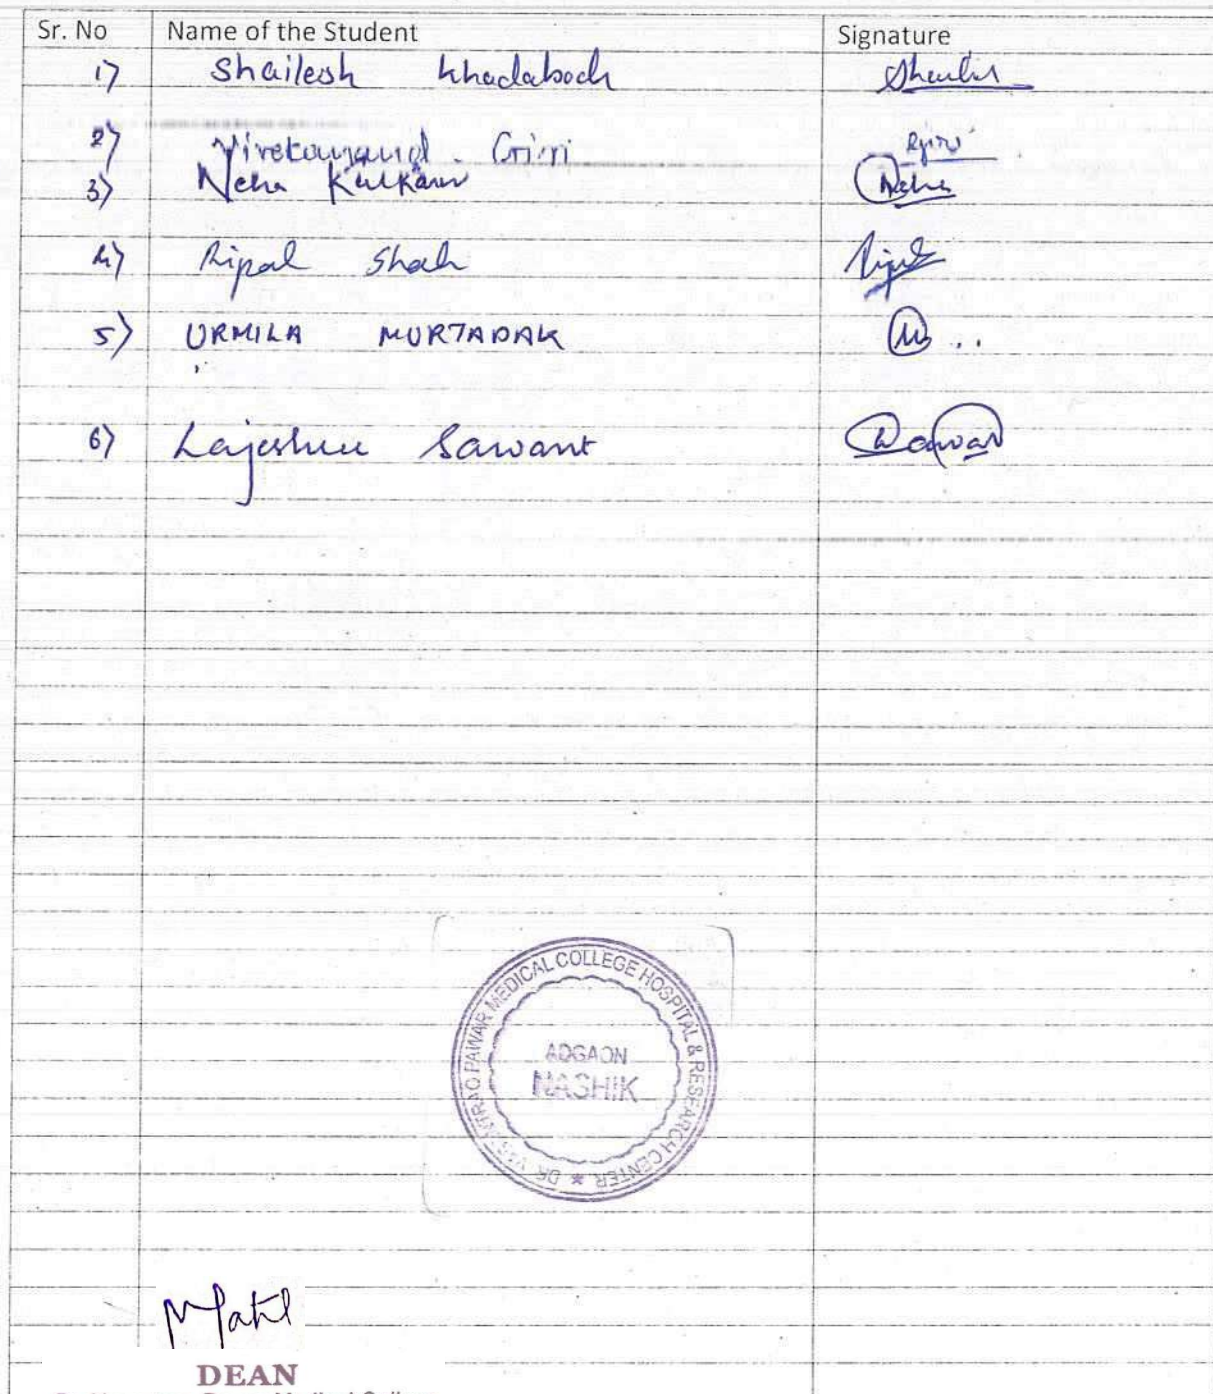 Sr. No Name of the Student Signature
1) Shailesh Khadabadi
2) Vivekanand . Giri Rgiri
3) Neha Kulkarni Neha
4) Ripal Shah Ripal
5) URMILA MURTADAK
6) Rajeshree Sawant Sawant
DR. VASANTRAO PAWAR MEDICAL COLLEGE HOSPITAL & RESEARCH CENTER *
ADGAON
NASHIK
MPatil
DEAN